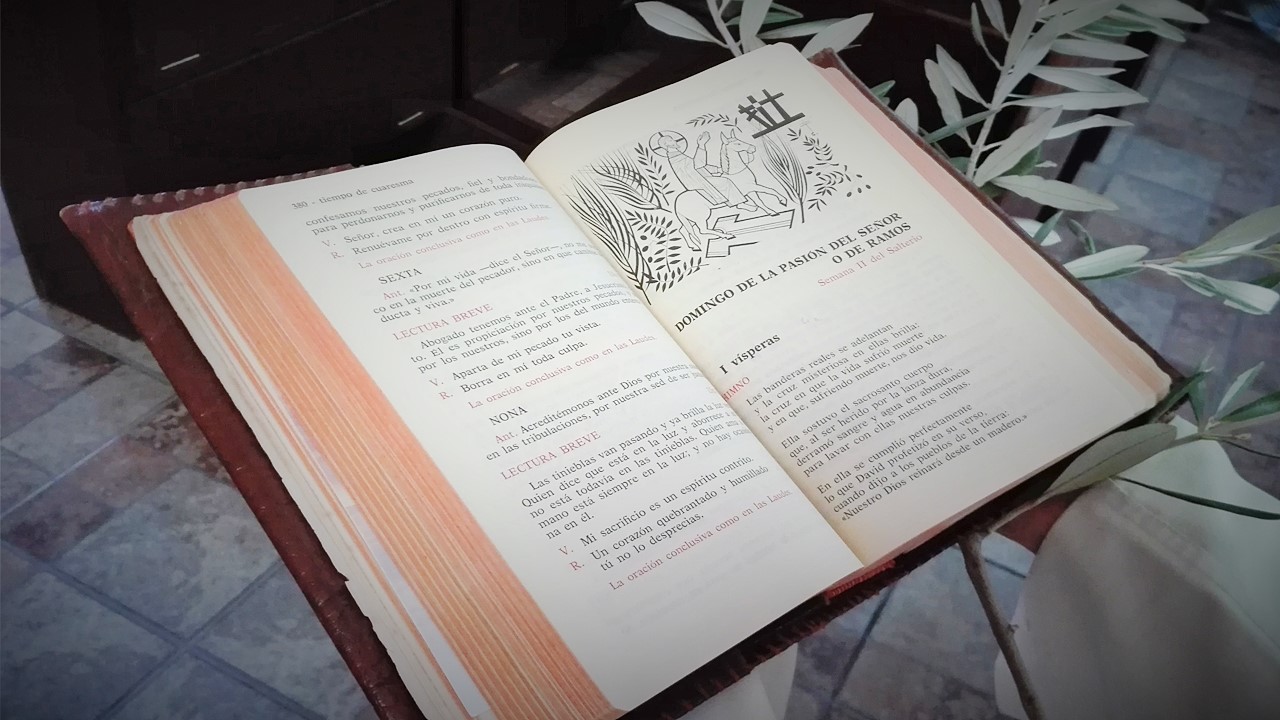 380 - tiempo de cuaresma
confesamos nuestros pecados, fiel y
para perdonarnos y purificarnos de toda
V. Señor, crea en mí un corazón puro.
R. Renuévame por dentro con espíritu firme.
La oración conclusiva como en las Laudes.
SEXTA
Ant. «Por mi vida —dice el Señor—, no me
co en la muerte del pecador, sino en que
ducta y viva.»
LECTURA BREVE
Abogado tenemos ante el Padre, a
to. El es propiciación por nuestros pecados,
por los nuestros, sino por los del mundo
V. Aparta de mi pecado tu vista.
R. Borra en mí toda culpa.
La oración conclusiva como en las Laudes.
NONA
Ant. Acreditémonos ante Dios por nuestra
en las tribulaciones, por nuestra sed de ser
LECTURA BREVE
Las tinieblas van pasando y ya brilla la luz
Quien dice que está en la luz y aborrece
no está todavía en las tinieblas. Quien ama
mano está siempre en la luz; y no hay
na en él.
V. Mi sacrificio es un espíritu contrito.
R. Un corazón quebrantado y humillado
tú no lo desprecias.
La oración conclusiva como en las Laudes
DOMINGO DE LA PASION DEL SEÑOR
O DE RAMOS
Semana II del Salterio
I vísperas
HIMNO
Las banderas reales se adelantan
y la cruz misteriosa en ellas brilla:
la cruz en que la vida sufrió muerte
y en que, sufriendo muerte, nos dio vida.
Ella sostuvo el sacrosanto cuerpo
que, al ser herido por la lanza dura,
derramó sangre y agua en abundancia
para lavar con ellas nuestras culpas.
En ella se cumplió perfectamente
lo que David profetizó en su verso,
cuando dijo a los pueblos de la tierra:
«Nuestro Dios reinará desde un madero.»